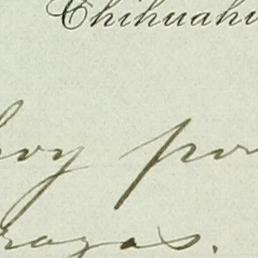 Chihuahu
hoy por
razas.